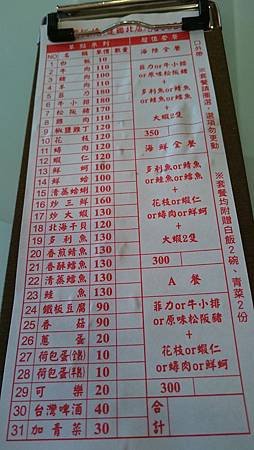 單點系列
NO. 名稱 單價 數量
1 白飯 10
2 牛肉 110
3 豬肉 110
4 羊肉 110
5 菲力 180
6 牛小排 180
7 松阪豬 170
8 鴨肉 120
9 椒鹽雞丁 120
10 花枝 110
11 蟳肉 110
12 蝦仁 120
13 鮮蚵 100
14 鮮蛤 100
15 清蒸蛤蜊 100
16 炒三鮮 160
17 炒大蝦 130
18 北海干貝 120
19 多利魚 130
20 香煎鱈魚 130
21 香酥鱈魚 130
22 清蒸鱈魚 130
23 鮭魚 130
24 鐵板豆腐 90
25 香菇 90
26 蔥蛋 20
27 荷包蛋(熟) 10
28 荷包蛋(半熟) 10
29 可樂 20
30 台灣啤酒 40
31 加青菜 30
超值套餐
海陸全餐
菲力or牛小排
or原味松阪豬
+
多利魚or鮭魚
or鮭魚or鱈魚
+
大蝦2隻
350
海鮮全餐
多利魚or鱈魚
or鮭魚or鱈魚
+
花枝or蝦仁
or蟳肉or鮮蚵
+
大蝦2隻
300
A餐
菲力or牛小排
or原味松阪豬
+
花枝or蝦仁
or蟳肉or鮮蚵
300
合計
口外帶
※套餐請圈選，選項勿更動
※套餐均附贈白飯2碗、青菜2份